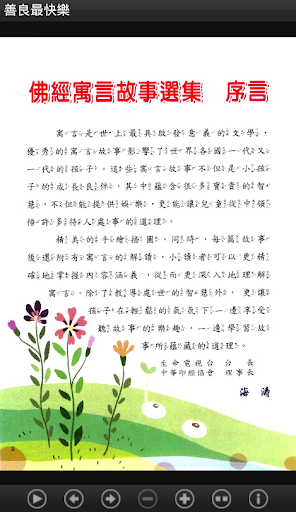 善良最快樂
佛經寓言故事選集　序言
寓言是世上最具啟發意義的文學，
優秀的寓言故事影響了世界各國一代又一代
的孩子。這些寓言故事不但是小孩
子的成長良伴，其中蘊含很多寶貴的智
慧，不但能提供娛樂，更能讓兒童從中領
悟許多待人處事的道理。
精美的手繪插圖。同時，每篇故事
後還附有寓言的解讀，小讀者可以更精
確地掌握內容涵義，從而更深入地理解
寓言。除了教導處世的智慧外，更讓
孩子在輕鬆的氣氛下一邊享受
聽故事的樂趣，一邊學習故
事所蘊藏的道理。
生命電視台　台　長
中華印經協會　理事長
海　濤
2